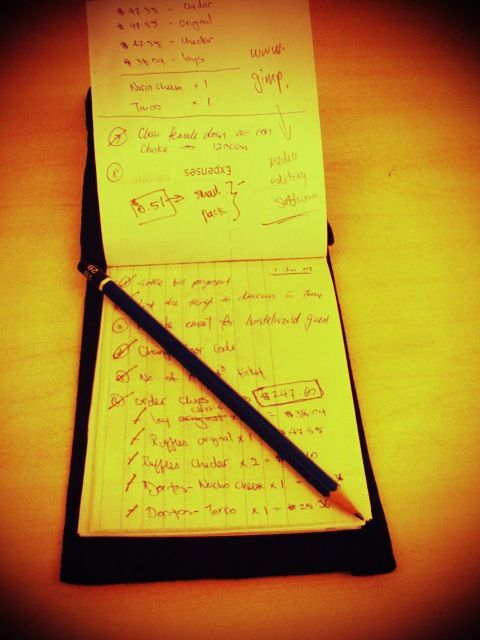 $47.55 - Chedar
$47.55 - original
$47.55 - chedar
$38.04 - lays
www.
gimp.
Nacho Cheese x 1
Tarco x 1
7 Clear female dorm air con
Choke → 12noon
8
Expenses
media
editing
software
0.51 → small
pack
1 Jun 09
1 Settle bill payment
things to discuss w Tony
3 email for hostelworld guest
4 Change door code
5 No of ticket
6 order chips $247.60
/ lay classic = $38.04
/ Ruffles original x 1 $47.55
/ Ruffles Chedar x 2 =
/ Doritos - Nacho Cheese x 1 =
/ Doritos - Tarco x 1 = $25.36